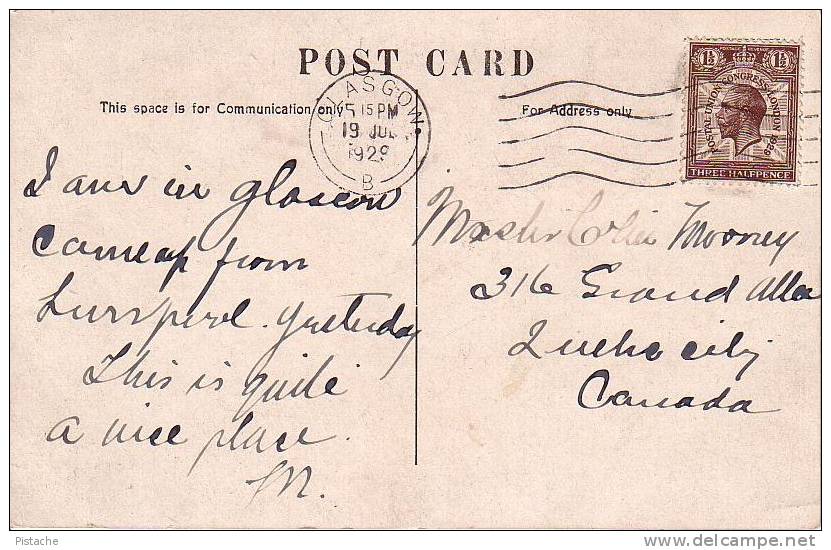 POST CARD
This space is for Communication only
For Address only
GLASGOW
5 15 PM
19 JUL
1929
B
1½ POSTAGE REVENUE 1½
POSTAL UNION CONGRESS LONDON 1929
THREE HALFPENCE
I am in glascow
came up from
Liverpool. yesterday
This is quite
a nice place.
M.
Master Colin Mooney
316 Grand Allee
Quebec city
Canada
Pistache
delcampe.net